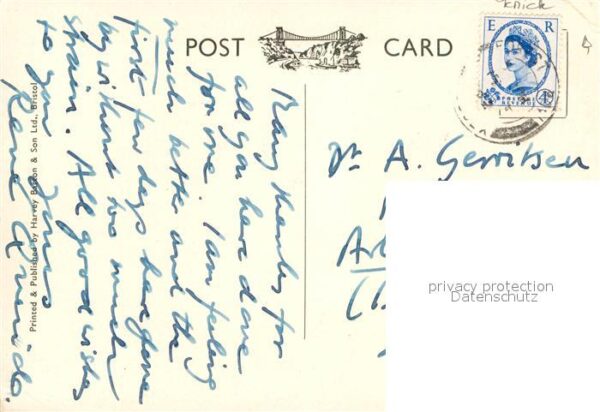 Knick
POST CARD
E R
POSTAGE REVENUE
4D
Many thanks for
all you have done
for me. I am feeling
much better and the
first few days have gone
by without too much
strain. All good wishes
to you
Yours
Dr A. Gerritsen
privacy protection
Datenschutz
Printed & Published by Harvey Barton & Son Ltd., Bristol